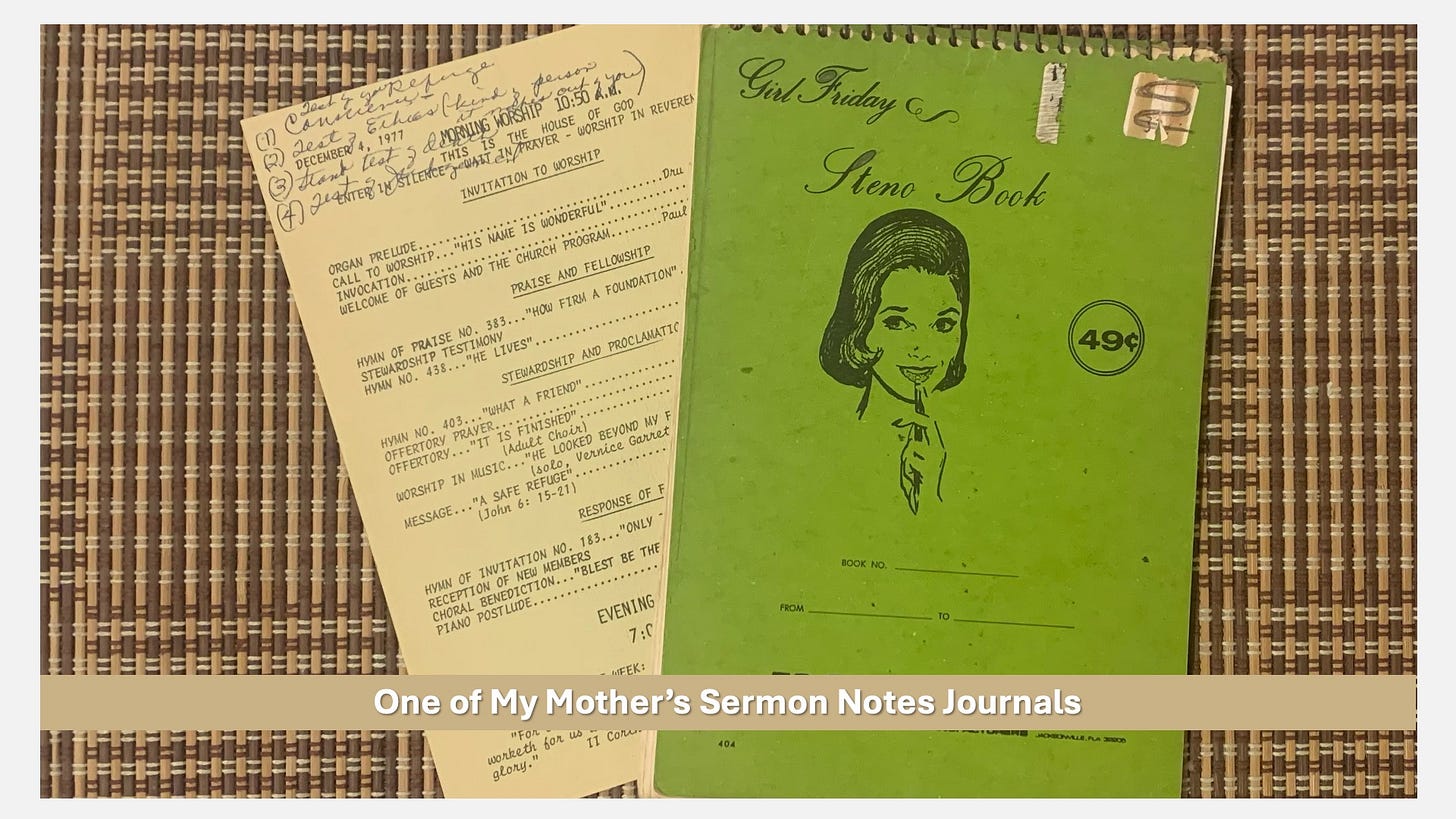 Test
(1) Conscience -
(2) Test of Ethics (kind of person
(3) stand test of
(4) Test of
DECEMBER 4, 1977
MORNING WORSHIP 10:50 A.M.
THIS IS THE HOUSE OF GOD
ENTER IN SILENCE - WAIT IN PRAYER - WORSHIP IN REVEREN
INVITATION TO WORSHIP
ORGAN PRELUDE..........Dru
CALL TO WORSHIP..."HIS NAME IS WONDERFUL"..........
INVOCATION..........Paul
WELCOME OF GUESTS AND THE CHURCH PROGRAM..........
PRAISE AND FELLOWSHIP
HYMN OF PRAISE NO. 383..."HOW FIRM A FOUNDATION".
STEWARDSHIP TESTIMONY
HYMN NO. 438..."HE LIVES"..........
STEWARDSHIP AND PROCLAMATIO
HYMN NO. 403..."WHAT A FRIEND"..........
OFFERTORY PRAYER..........
OFFERTORY..."IT IS FINISHED"..........
(Adult Choir)
WORSHIP IN MUSIC..."HE LOOKED BEYOND MY F
(solo, Vernice Garret
MESSAGE..."A SAFE REFUGE"..........
(John 6: 15-21)
RESPONSE OF F
HYMN OF INVITATION NO. 183..."ONLY -
RECEPTION OF NEW MEMBERS
CHORAL BENEDICTION..."BLEST BE THE
PIANO POSTLUDE..........
EVENING
7:0
WEEK:
"For
worketh for us
II Cor
glory."
Girl Friday
Steno Book
49¢
BOOK NO.
FROM TO
JACKSONVILLE, FLA
404
One of My Mother's Sermon Notes Journals